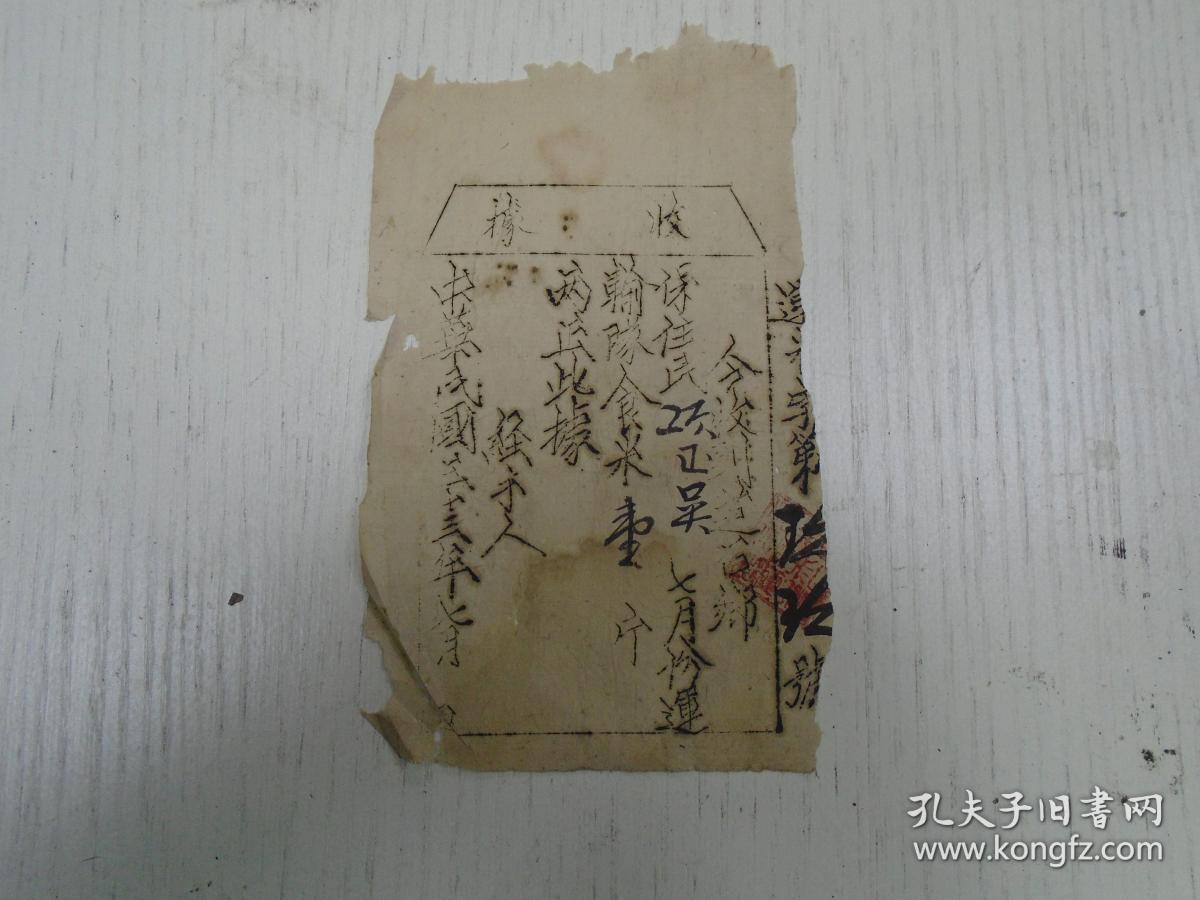 收據
字第 號
今收 鄉
保住民 正吳 七月份運
輸隊食米壹 斤
兩正此據
經手人
中華民國三十三年七月 日
孔夫子旧书网
www.kongfz.com